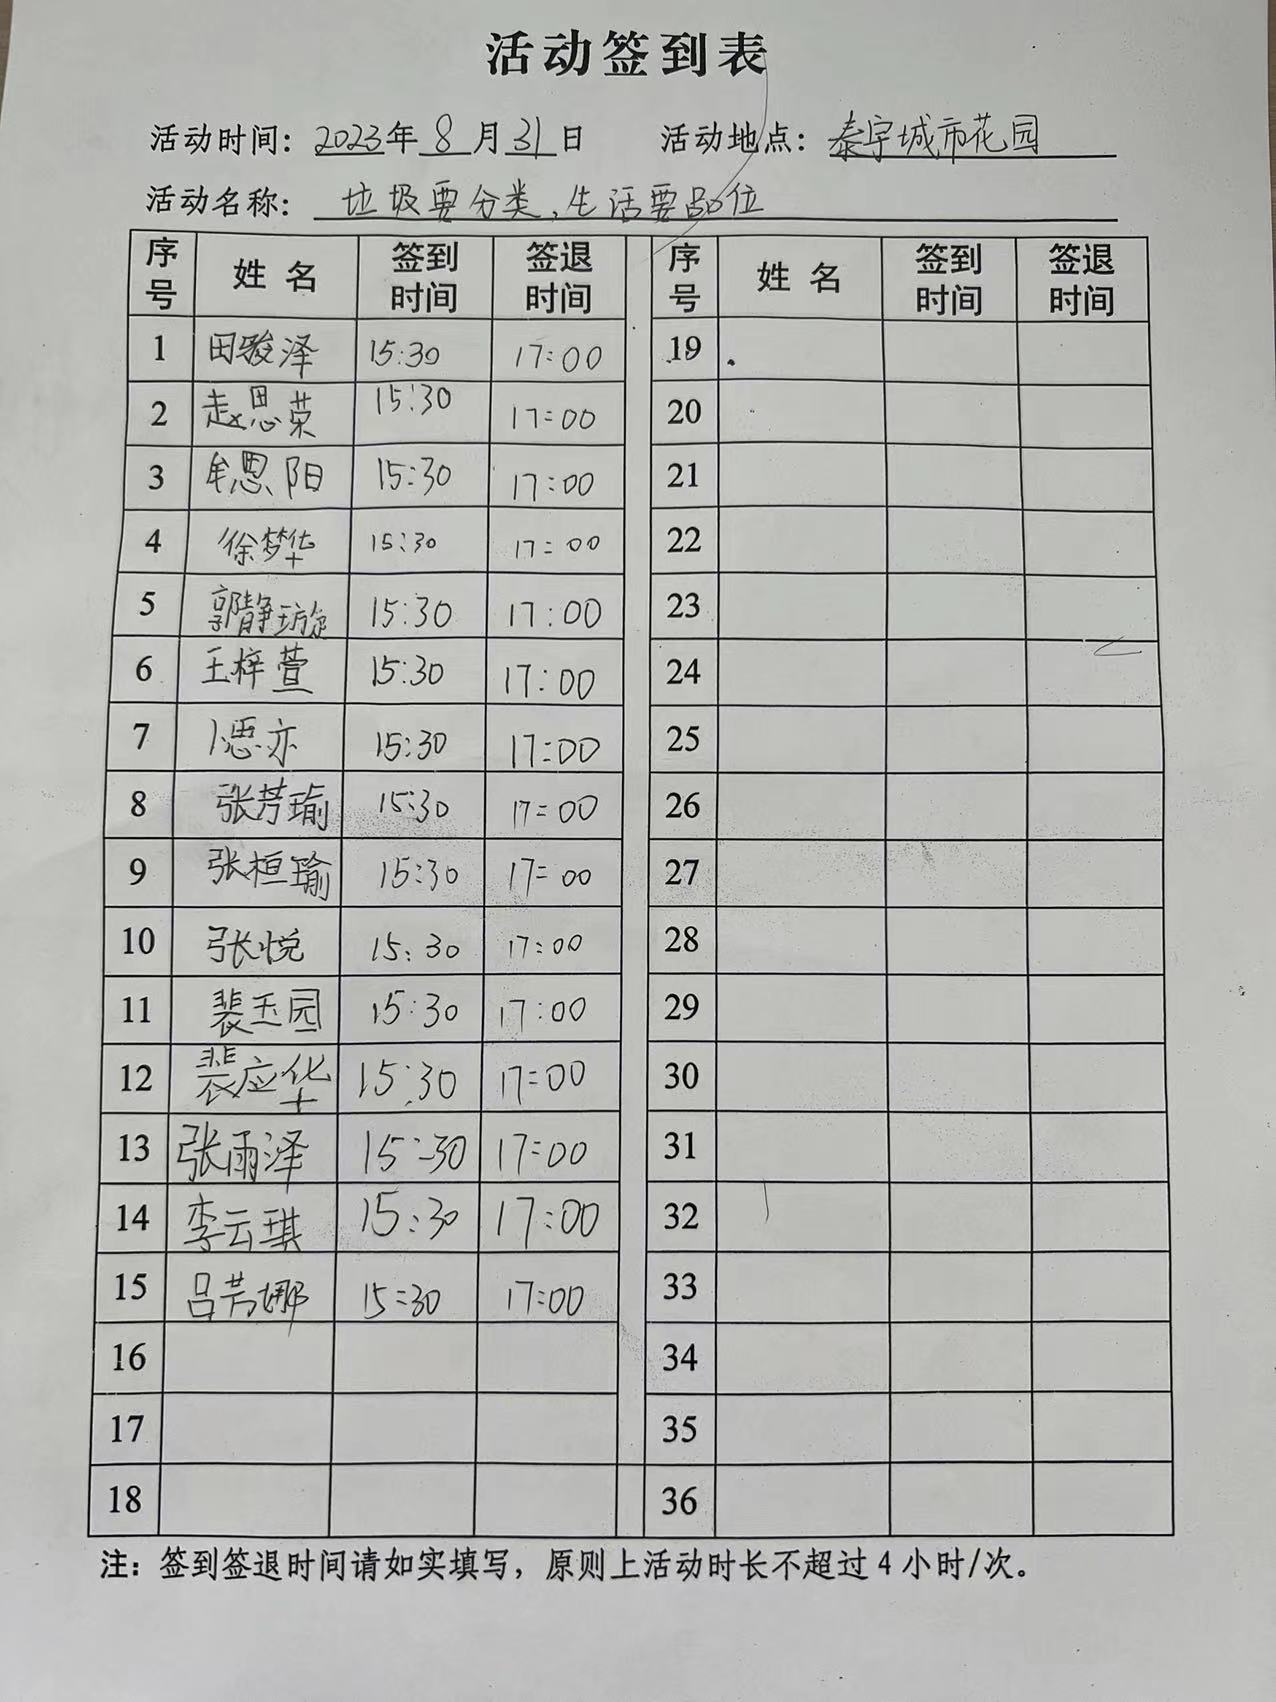 活动签到表
活动时间：2023年8月31日 活动地点：泰宇城市花园
活动名称：垃圾要分类，生活要品位
序号 姓名 签到时间 签退时间 序号 姓名 签到时间 签退时间
1 田骏泽 15:30 17:00 19
2 赵恩荣 15:30 17:00 20
3 牟恩阳 15:30 17:00 21
4 徐梦华 15:30 17:00 22
5 郭静璇 15:30 17:00 23
6 王梓萱 15:30 17:00 24
7 思亦 15:30 17:00 25
8 张芳瑜 15:30 17:00 26
9 张桓瑜 15:30 17:00 27
10 张悦 15:30 17:00 28
11 裴玉园 15:30 17:00 29
12 裴应华 15:30 17:00 30
13 张雨泽 15:30 17:00 31
14 李云琪 15:30 17:00 32
15 吕芳娜 15:30 17:00 33
16 34
17 35
18 36
注：签到签退时间请如实填写，原则上活动时长不超过4小时/次。